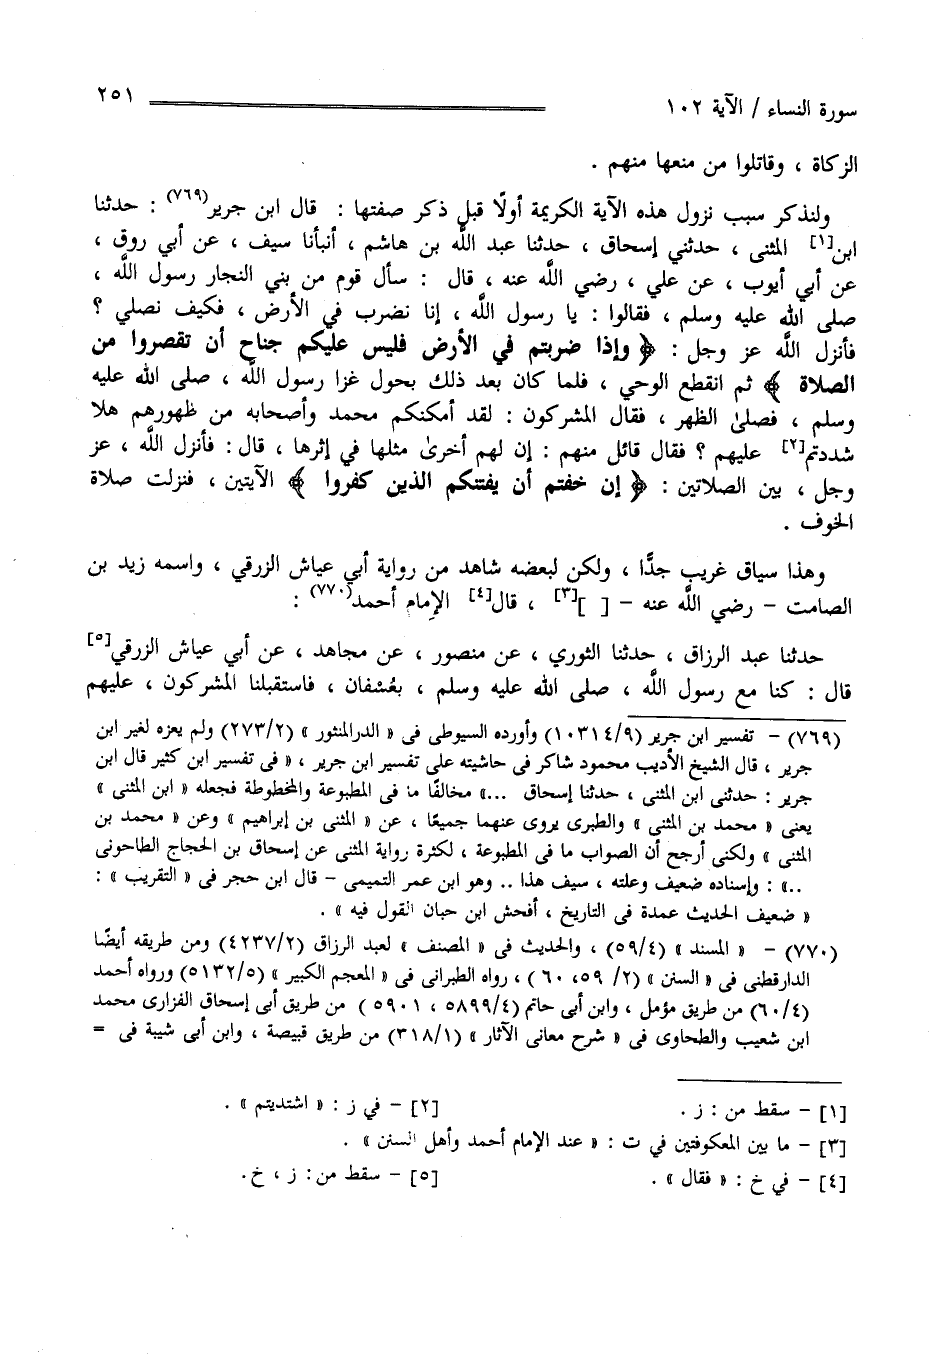 سورة النساء / الآية ١٠٢
٢٥١
الزكاة ، وقاتلوا من منعها منهم .
ولنذكر سبب نزول هذه الآية الكريمة أولًا قبل ذكر صفتها : قال ابن جرير(٧٦٩) : حدثنا
ابن[١] المثنى ، حدثني إسحاق ، حدثنا عبد الله بن هاشم ، أنبأنا سيف ، عن أبي روق ،
عن أبي أيوب ، عن علي ، رضي الله عنه ، قال : سأل قوم من بني النجار رسول الله ،
صلى الله عليه وسلم ، فقالوا : يا رسول الله ، إنا نضرب في الأرض ، فكيف نصلي ؟
فأنزل الله عز وجل : ﴿ وإذا ضربتم في الأرض فليس عليكم جناح أن تقصروا من
الصلاة ﴾ ثم انقطع الوحي ، فلما كان بعد ذلك بحول غزا رسول الله ، صلى الله عليه
وسلم ، فصلىٰ الظهر ، فقال المشركون : لقد أمكنكم محمد وأصحابه من ظهورهم هلا
شددتم[٢] عليهم ؟ فقال قائل منهم : إن لهم أخرىٰ مثلها في إثرها ، قال : فأنزل الله ، عز
وجل ، بين الصلاتين : ﴿ إن خفتم أن يفتنكم الذين كفروا ﴾ الآيتين ، فنزلت صلاة
الخوف .
وهذا سياق غريب جدًّا ، ولكن لبعضه شاهد من رواية أبي عياش الزرقي ، واسمه زيد بن
الصامت – رضي الله عنه – [ ][٣] ، قال[٤] الإمام أحمد(٧٧٠) :
حدثنا عبد الرزاق ، حدثنا الثوري ، عن منصور ، عن مجاهد ، عن أبي عياش الزرقي[٥]
قال : كنا مع رسول الله ، صلى الله عليه وسلم ، بعُسْفان ، فاستقبلنا المشركون ، عليهم
(٧٦٩) – تفسير ابن جرير (١٠٣١٤/٩) وأورده السيوطى فى « الدرالمنثور » (٢٧٣/٢) ولم يعزه لغير ابن
جرير ، قال الشيخ الأديب محمود شاكر فى حاشيته على تفسير ابن جرير ، « فى تفسير ابن كثير قال ابن
جرير : حدثنى ابن المثنى ، حدثنا إسحاق ...» مخالفًا ما فى المطبوعة والمخطوطة فجعله « ابن المثنى »
يعنى « محمد بن المثنى » والطبرى يروى عنهما جميعًا ، عن « المثنى بن إبراهيم » وعن « محمد بن
المثنى » ولكنى أرجح أن الصواب ما فى المطبوعة ، لكثرة رواية المثنى عن إسحاق بن الحجاج الطاحونى
..» : وإسناده ضعيف وعلته ، سيف هذا .. وهو ابن عمر التميمى – قال ابن حجر فى « التقريب » :
« ضعيف الحديث عمدة فى التاريخ ، أفحش ابن حبان القول فيه » .
(٧٧٠) – « المسند » (٥٩/٤) ، والحديث فى « المصنف » لعبد الرزاق (٤٢٣٧/٢) ومن طريقه أيضًا
الدارقطنى فى « السنن » (٢/ ٥٩، ٦٠ ) ، رواه الطبرانى فى « المعجم الكبير » (٥١٣٢/٥) ورواه أحمد
(٦٠/٤) من طريق مؤمل ، وابن أبى حاتم (٥٨٩٩/٤ ، ٥٩٠١ ) من طريق أبى إسحاق الفزارى محمد
ابن شعيب والطحاوى فى « شرح معانى الآثار » (٣١٨/١) من طريق قبيصة ، وابن أبى شيبة فى =
[١] – سقط من : ز .
[٢] – في ز : « اشتديتم » .
[٣] – ما بين المعكوفتين في ت : « عند الإمام أحمد وأهل السنن » .
[٤] – في خ : « فقال » .
[٥] – سقط من: ز ، خ.